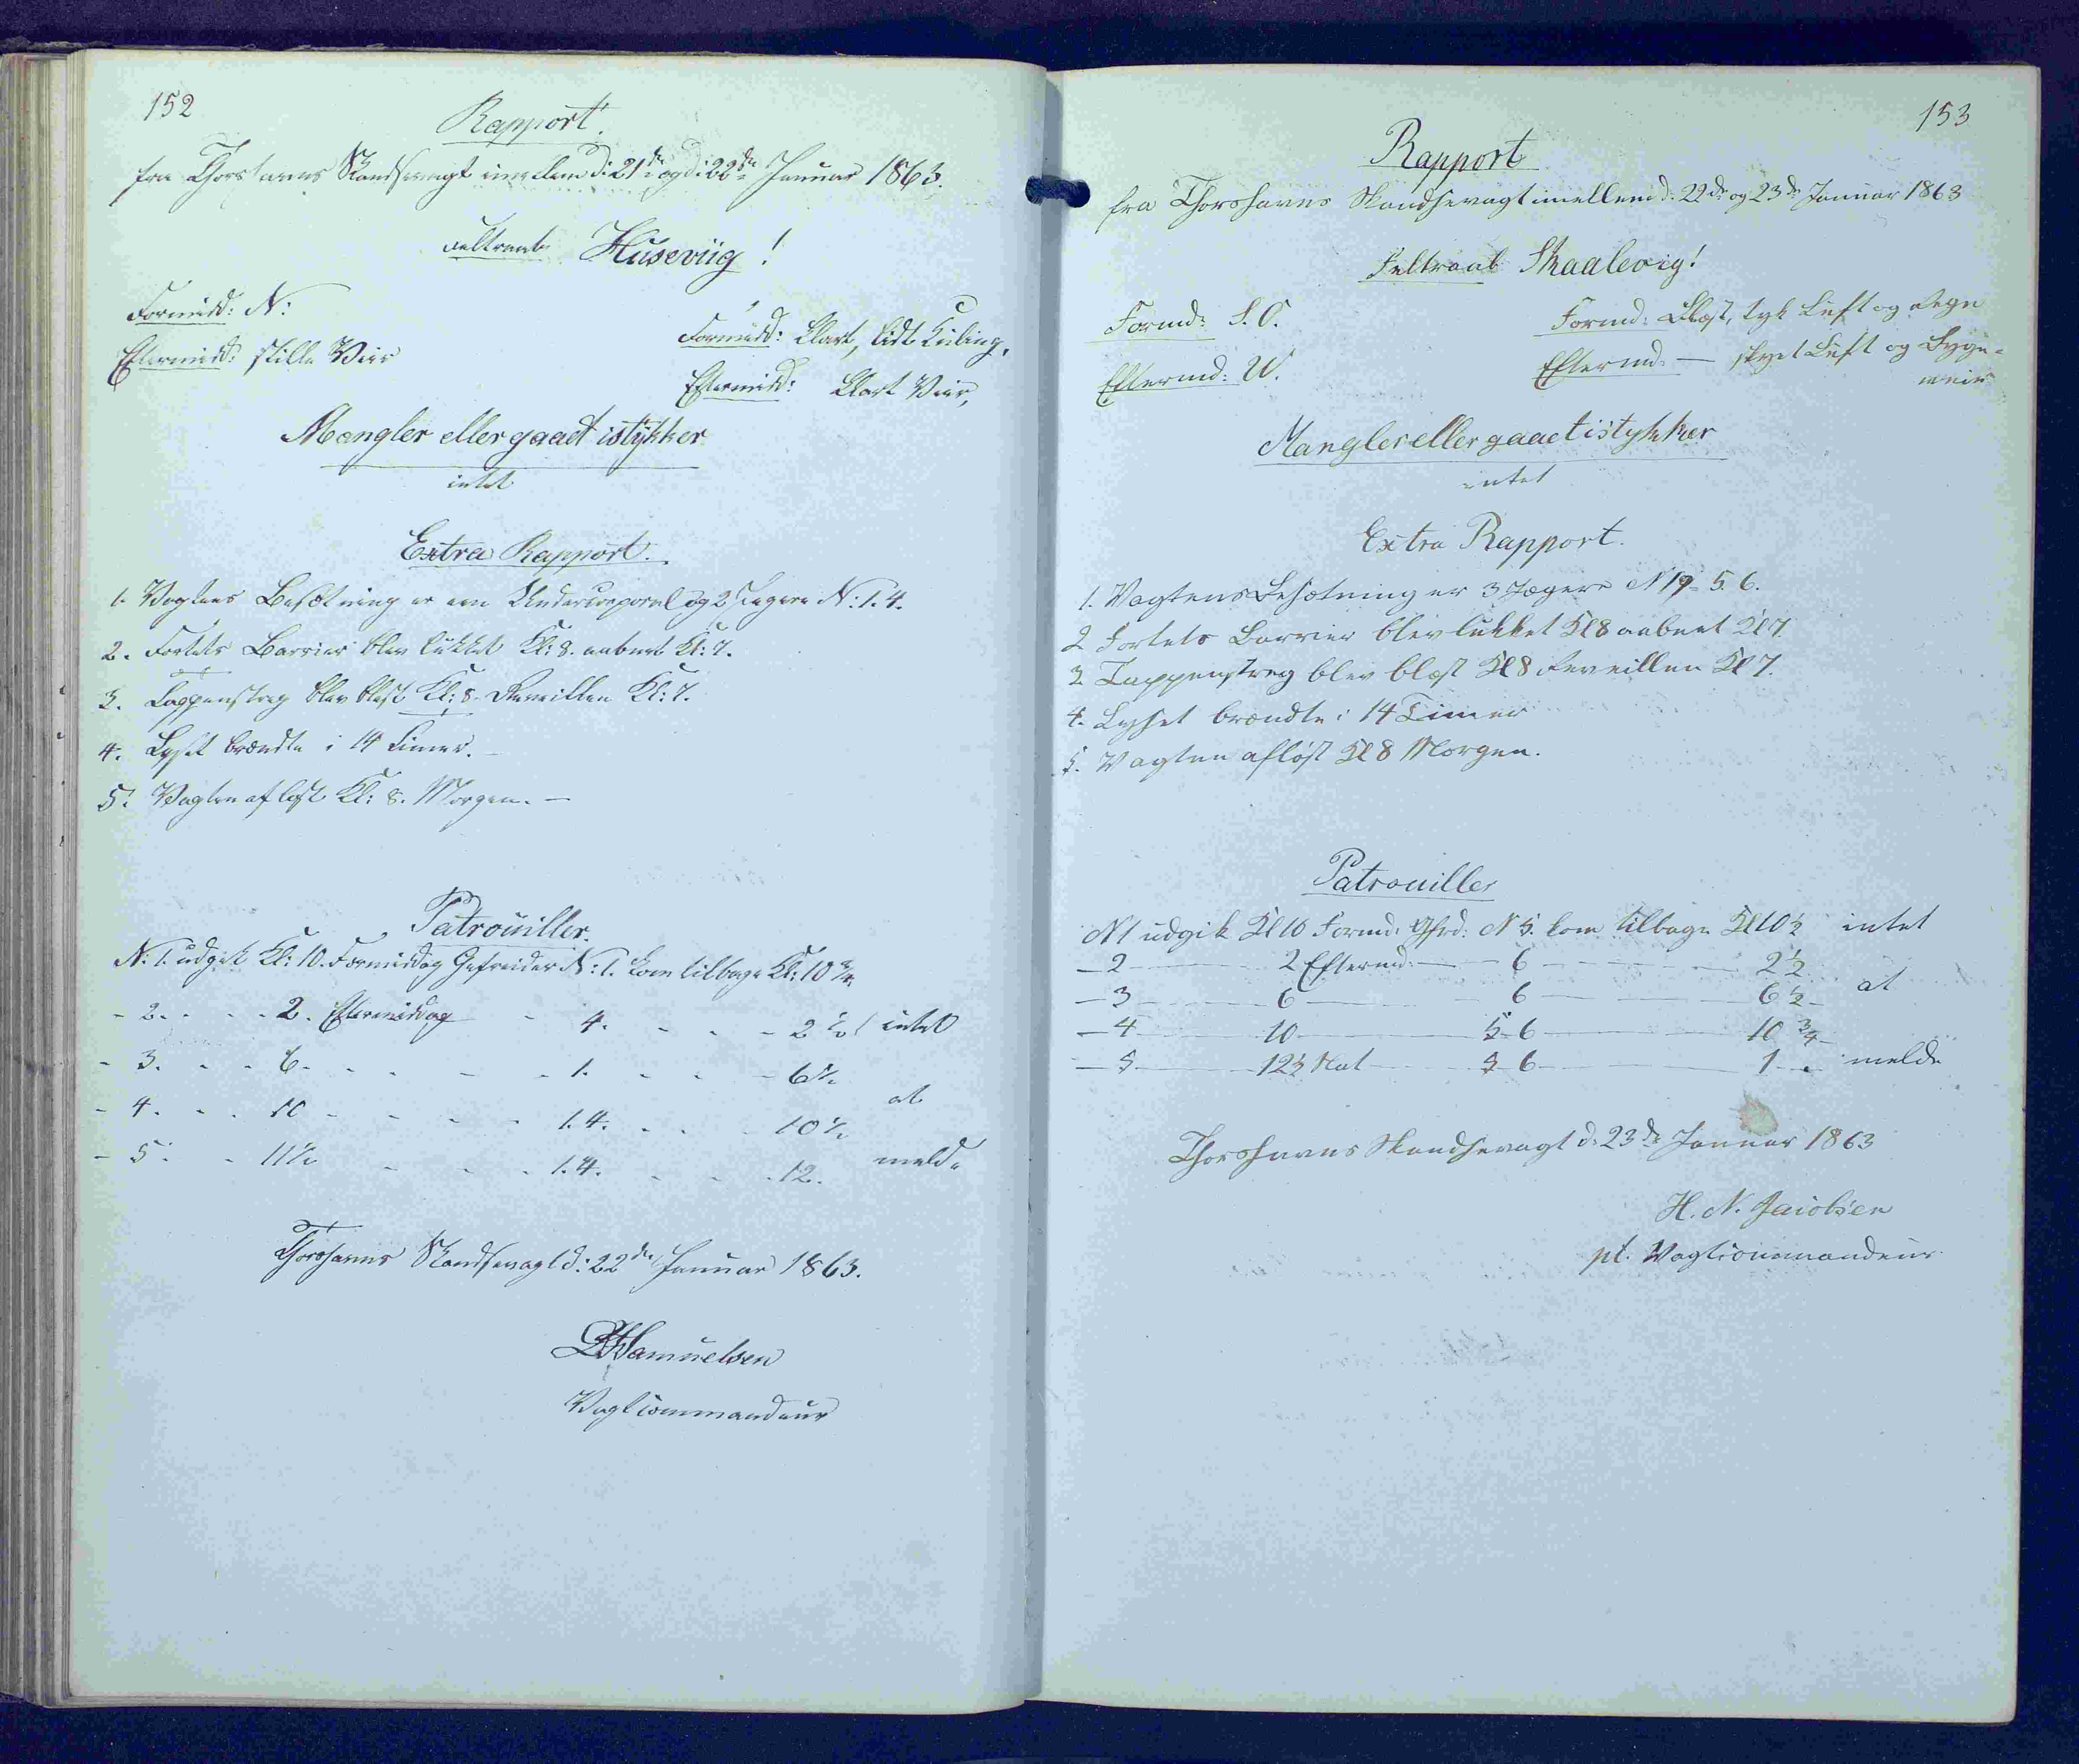 152
Rapport.
fra Thorshavns Skandsevagt imellem d: 21de og d: 22de Januar 1863.
Feltraab Husevüg!
Formidd: N:
Formidd: Klart, lidt Kuling,
Eftermidd: stille Veir
Eftermidd: Klart Veir,
Mangler eller gaaet istÿkker
intet
Extra Rapport.
1. Vagtens Besætning er een Undercorporal og 2 Jægere N: 1. 4.
2. Fortets Barrier blev lukket Kl: 8. aabnet Kl: 7.
3. Tappenstreg blev blæst Kl: 8. Reveillen Kl: 7.
4. Lyset brændte i 14 Timer. –
5. Vagten afløst Kl: 8. Morgen. –
Patrouiller.
N: 1. udgik Kl: 10. Formiddag Gefreider N: 1. kom tilbage Kl: 10 3/4
- 2. - - - 2. Eftermiddag - 4. - - - 2 1/2 intet
- 3. - - 6. - - - - 1. - - - 6 1/2
at
- 4. - - 10 - - - - 1. 4. - - - 10 1/2
- 5. - 11 1/2 - - - 1. 4. - - - 12.
melde
Thorshavns Skandsevagt d: 22de Januar 1863.
Samuelsen
Vagtcommandeur
153
Rapport
fra Thorshavns Skandsevagt imellem d: 22de og 23de Januar 1863
Feltraab Skaalevig!
Formd: S. O.
Formd: Blæst, tyk Luft og Regn
Eftermd: V.
Eftermd: — skyet Luft og Byge-
veir
Mangler eller gaaet istykker
intet
Extra Rapport.
1. Vagtens Besætning er 3 Jægere N 5. 6.
2 Fortets Barrier blev lukket Kl 8 aabnet Kl 7.
3 Tappenstreg blev blæst Kl 8 Reveillen Kl 7.
4. Lyset brændte i 14 Timer
5. Vagten afløst Kl 8 Morgen.
Patrouiller
N 1 udgik Kl 10 Formd: Gfrd: N 5. kom tilbage Kl 10 1/2 intet
— 2 — 2 Eftermd: — 6 — 2 1/2
— 3 — 6 — 6 — 6 1/2 at
— 4 — 10 — 5 6 — 10 3/4
— 5 — 12 1/2 Nat — 5 6 — 1 - melde
Thorshavns Skandsevagt d: 23de Januar 1863
H. N. Jacobsen
pt. Vagtcommandeur